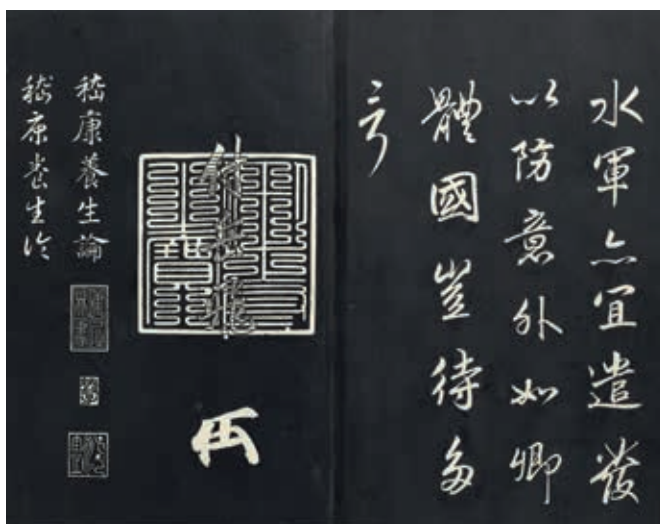 水軍亦宜遣發
以防意外如卿
體國豈待多
言
付岳飛
嵇康養生論
嵇康養生論